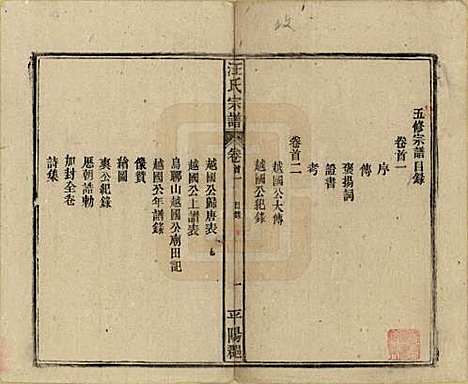 五修宗譜目錄
卷首一
序
傳
褒揚詞
證書
考
卷首二
越國公大傳
越國公紀錄
汪氏宗譜
卷首一
目錄
一
平陽郡
越國公歸唐表
越國公上譜表
烏聊山越國公廟田記
越國公年譜錄
像贊
繪圖
襄公紀錄
歷朝誥勅
加封全卷
詩集